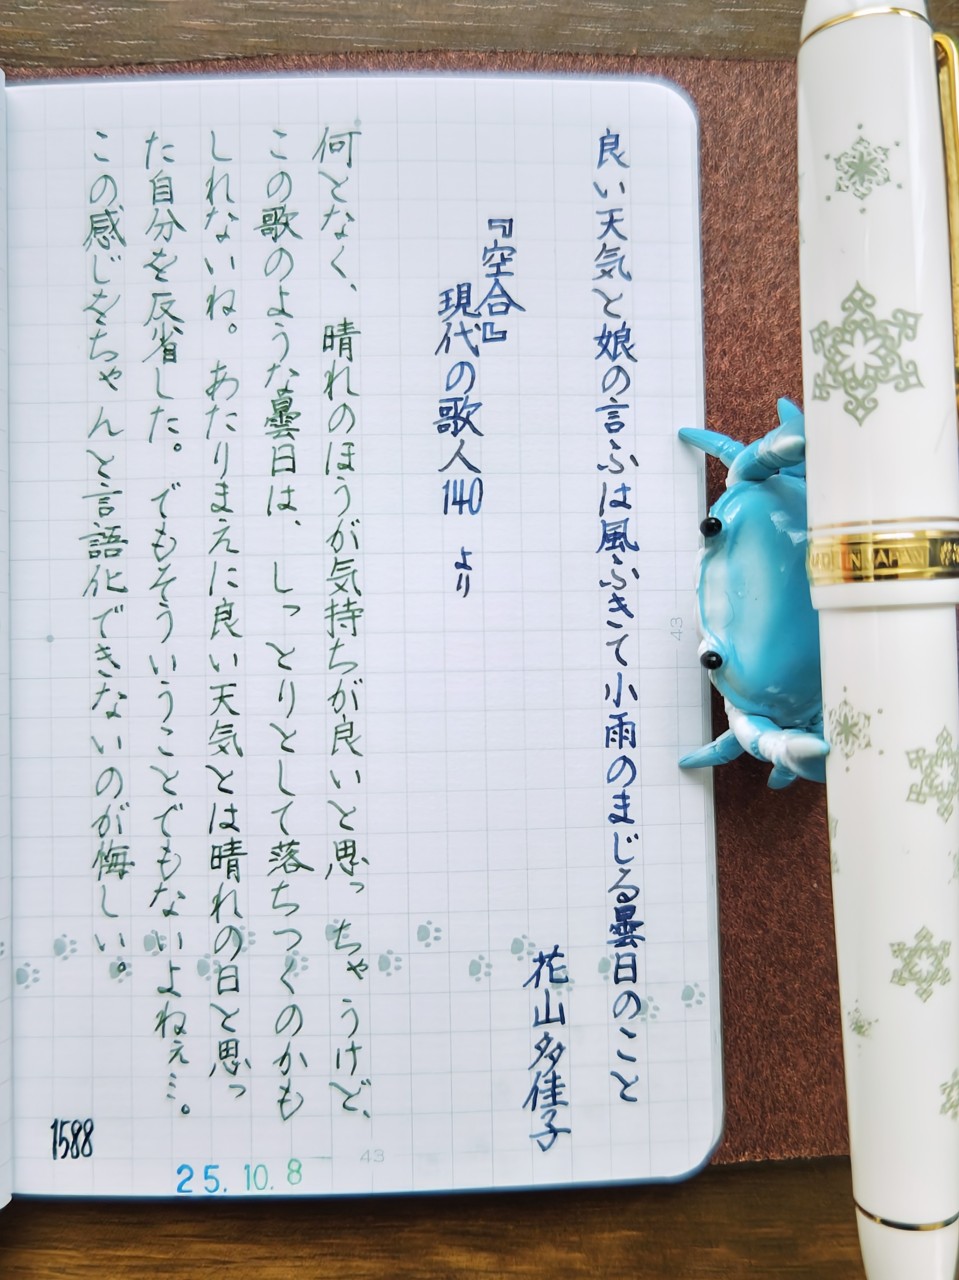 良い天気と娘の言ふは風ふきて小雨のまじる曇日のこと
花山多佳子
『空合』
現代の歌人140 より
何となく、晴れのほうが気持ちが良いと思っちゃうけど、
この歌のような曇日は、しっとりとして落ちつくのかも
しれないね。あたりまえに良い天気とは晴れの日と思っ
た自分を反省した。でもそういうことでもないよねぇ…。
この感じをちゃんと言語化できないのが悔しい。
1588
25.10.8
43
43